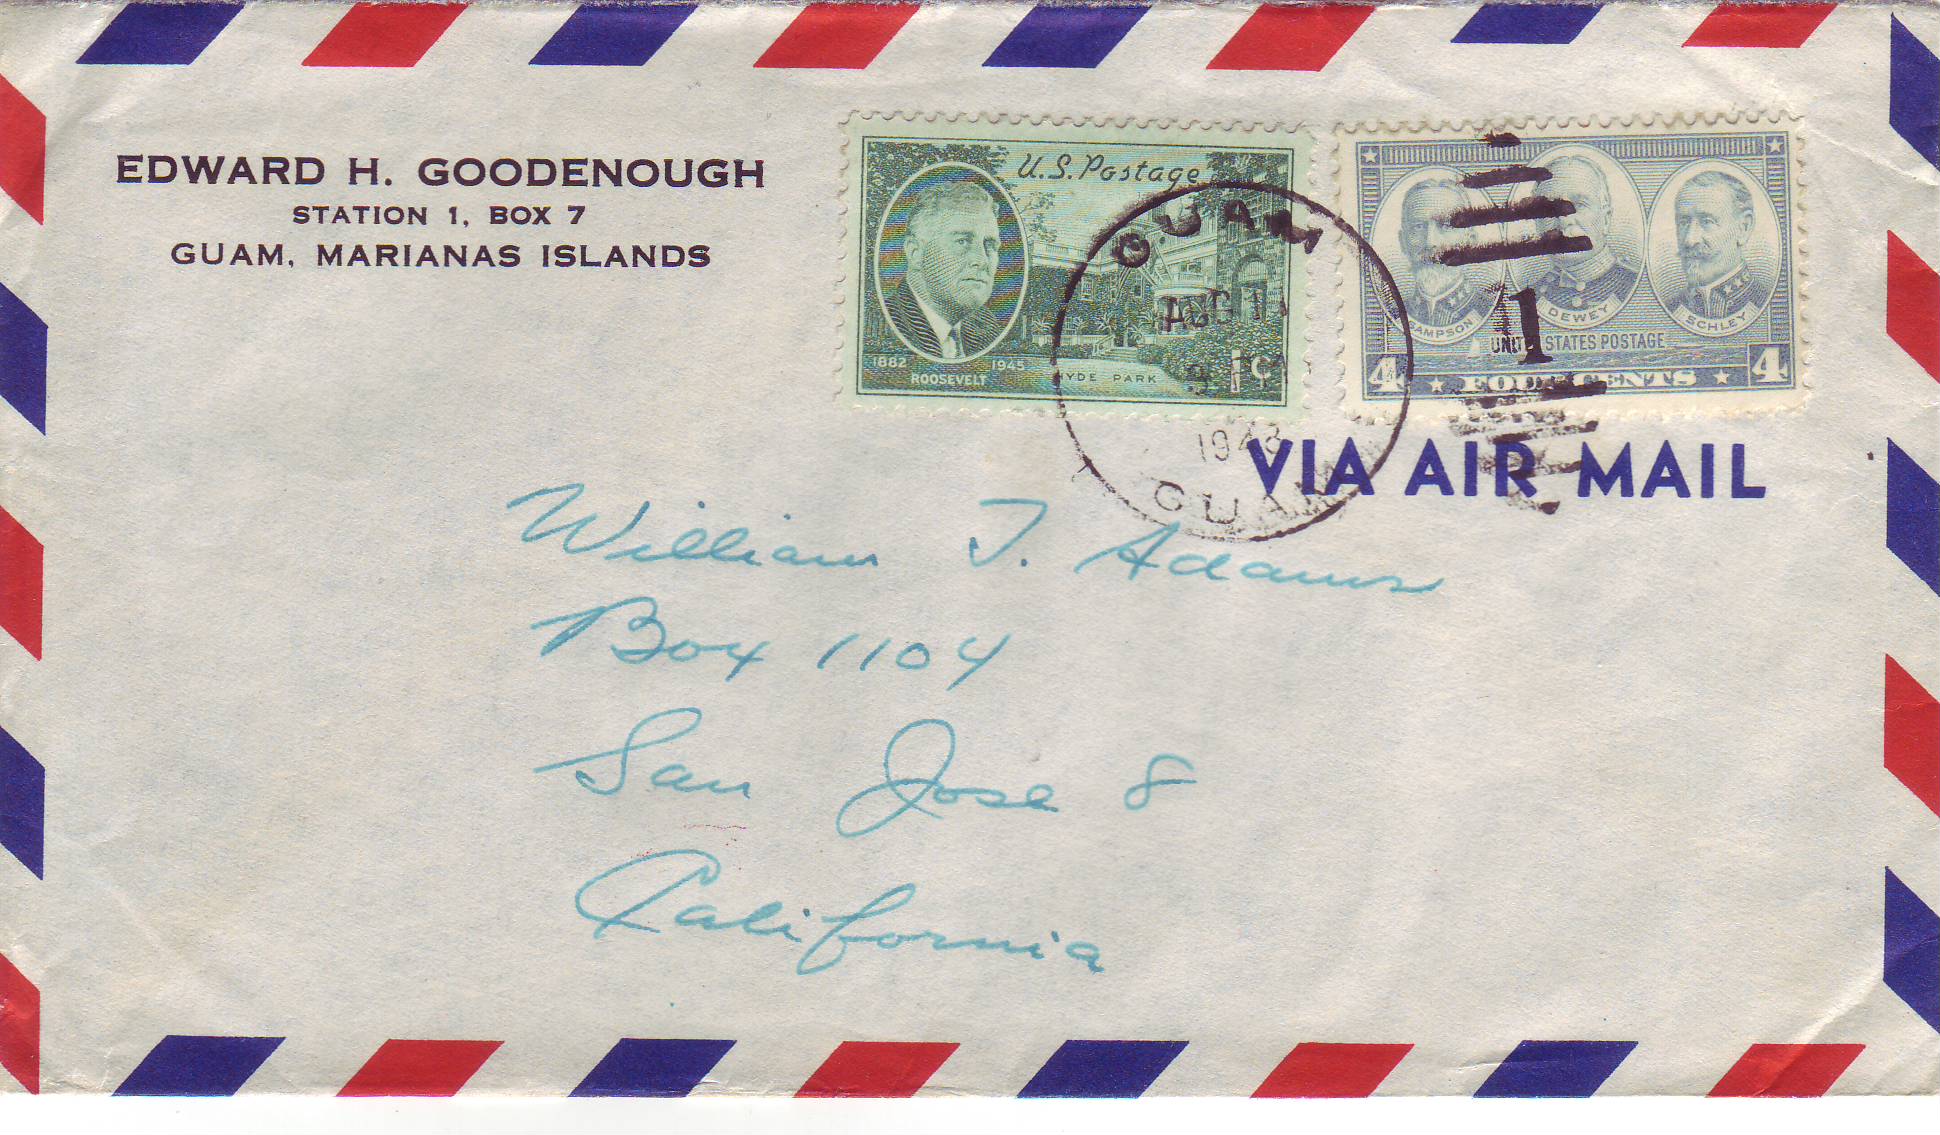 EDWARD H. GOODENOUGH
STATION 1, BOX 7
GUAM, MARIANAS ISLANDS
U.S. Postage
1882 1945
ROOSEVELT
HYDE PARK
1¢
SAMPSON
DEWEY
SCHLEY
UNITED STATES POSTAGE
4 FOUR CENTS 4
GUAM
AUG 11
1948
GUAM
1
VIA AIR MAIL
William T. Adams
Box 1104
San Jose 8
California